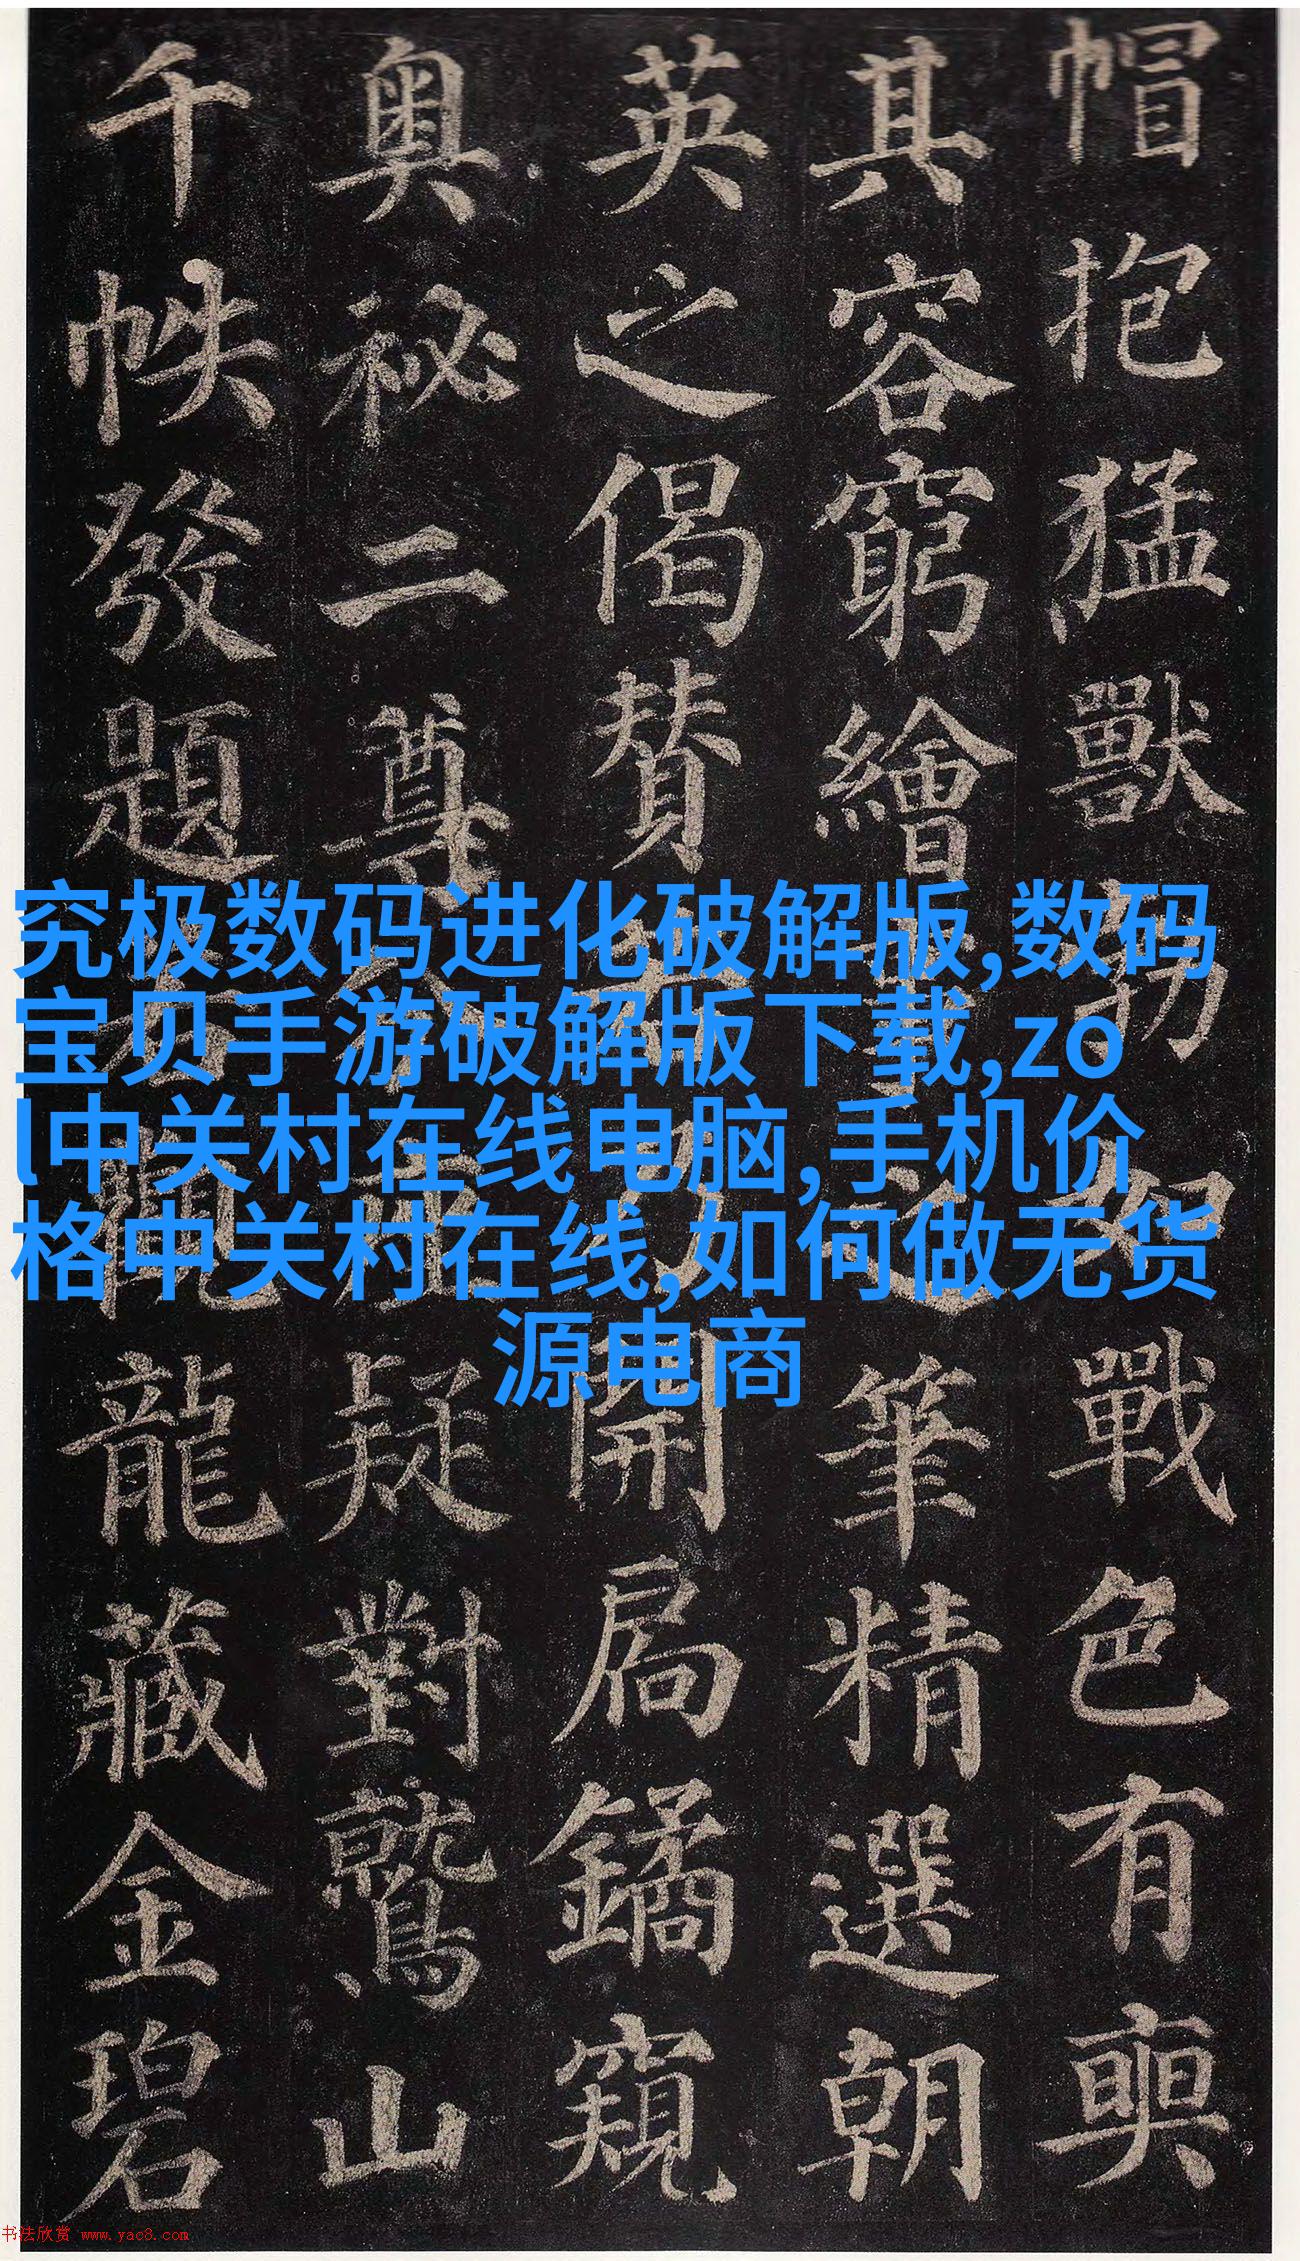 帽抱猛獸
戰色有奭
其容窮繪
筆精選朝
英之偈贊
開扃鐍窺
奥祕二尊
疑對鷲山
千帙發題
龍藏金碧
究极数码进化破解版,数码
宝贝手游破解版下载,zo
l中关村在线电脑,手机价
格中关村在线,如何做无货
源电商
书法欣赏 www.yac8.com